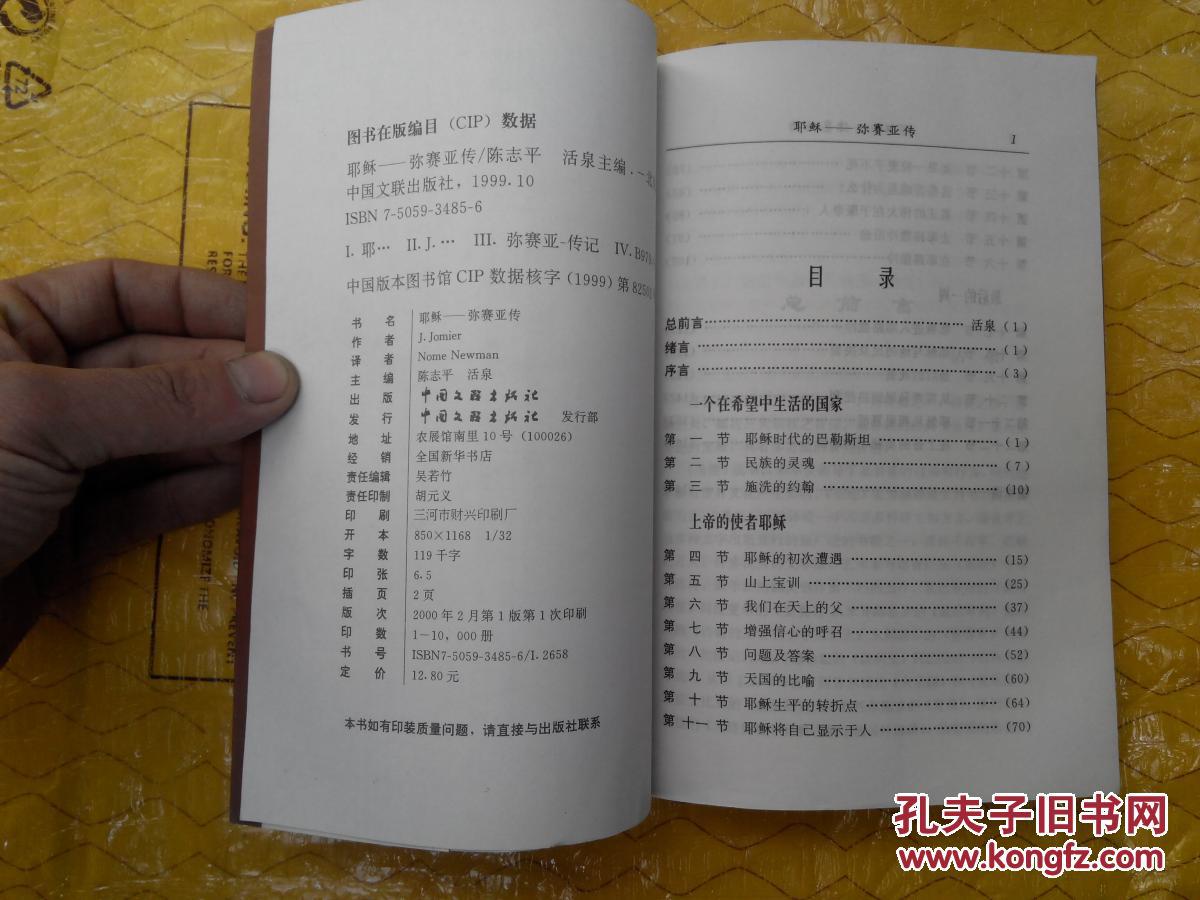 图书在版编目（CIP）数据
耶稣——弥赛亚传/陈志平　活泉主编.－北
中国文联出版社，1999.10
ISBN 7-5059-3485-6
I. 耶… II. J. … III. 弥赛亚-传记 IV. B979
中国版本图书馆 CIP 数据核字（1999）第 8250
书　名 耶稣——弥赛亚传
作　者 J. Jomier
译　者 Nome Newman
主　编 陈志平　活泉
出　版 中国文联出版社
发　行 中国文联出版社 发行部
地　址 农展馆南里 10 号（100026）
经　销 全国新华书店
责任编辑 吴若竹
责任印制 胡元义
印　刷 三河市财兴印刷厂
开　本 850×1168　1/32
字　数 119 千字
印　张 6.5
插　页 2 页
版　次 2000 年 2 月第 1 版第 1 次印刷
印　数 1－10，000 册
书　号 ISBN7-5059-3485-6/I. 2658
定　价 12.80 元
本书如有印装质量问题，请直接与出版社联系
耶稣——弥赛亚传 1
目　录
总前言…………………………………… 活泉（1）
绪言……………………………………（1）
序言……………………………………（3）
一个在希望中生活的国家
第 一 节　耶稣时代的巴勒斯坦……………（1）
第 二 节　民族的灵魂……………………（7）
第 三 节　施洗的约翰……………………（10）
上帝的使者耶稣
第 四 节　耶稣的初次遭遇………………（15）
第 五 节　山上宝训……………………（25）
第 六 节　我们在天上的父………………（37）
第 七 节　增强信心的呼召………………（44）
第 八 节　问题及答案……………………（52）
第 九 节　天国的比喻……………………（60）
第 十 节　耶稣生平的转折点……………（64）
第 十一 节　耶稣将自己显示于人…………（70）
孔夫子旧书网
www.kongfz.com